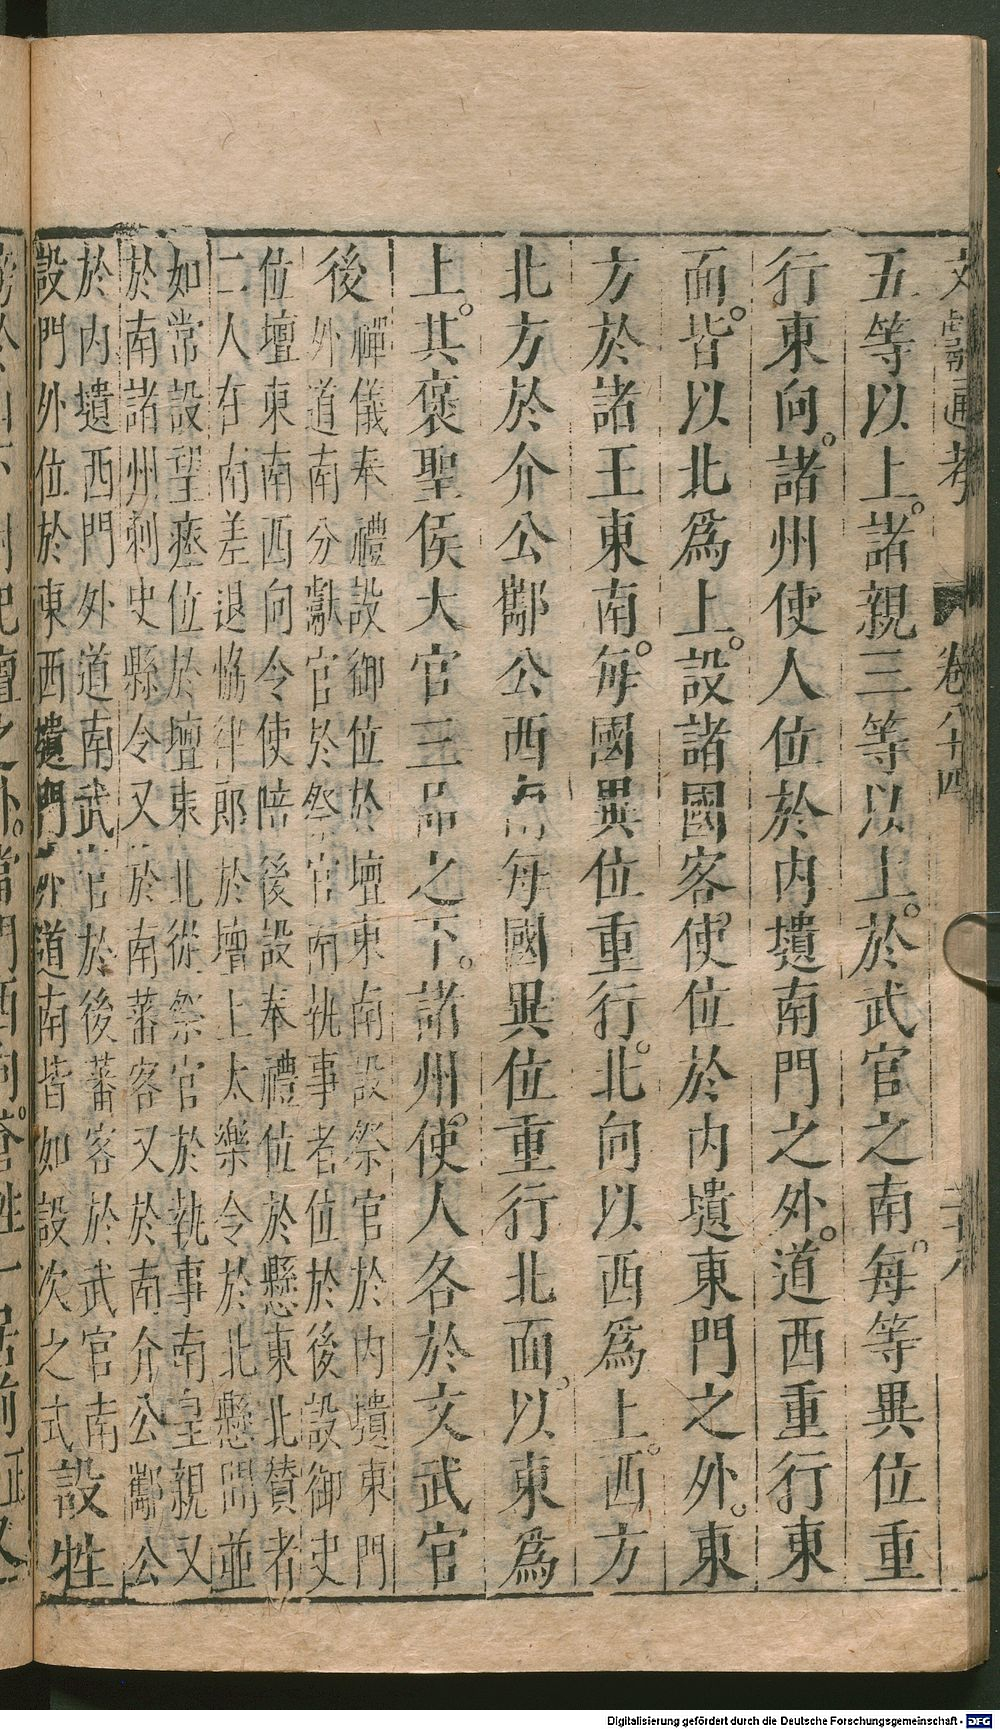 文獻通考 卷八十四 二十八
五等以上。諸親三等以上。於武官之南。每等異位重
行東向。諸州使人位於内壝南門之外。道西重行東
面。皆以北爲上。設諸國客使位於内壝東門之外。東
方於諸王東南。每國異位重行。北向以西爲上。西方
北方於介公酅公西南每國異位重行北面。以東爲
上。其褒聖侯大官三品之下。諸州使人各於文武官
後
禪儀奉禮設御位於壇東南設祭官於内壝東門
外道南分獻官於祭官南執事者位於後設御史
位壇東南西向令使陪後設奉禮位於懸東北贊者
二人在南差退恊律郎於壇上太樂令於北懸間並
如常設望瘞位於壇東北從祭官於執事南皇親又
於南諸州刺史縣令又於南蕃客又於南介公酅公
於内壝西門外道南武官於後蕃客於武官南
設門外位於東西壝門外道南皆如設次之式
設牲
Digitalisierung gefördert durch die Deutsche Forschungsgemeinschaft - DFG